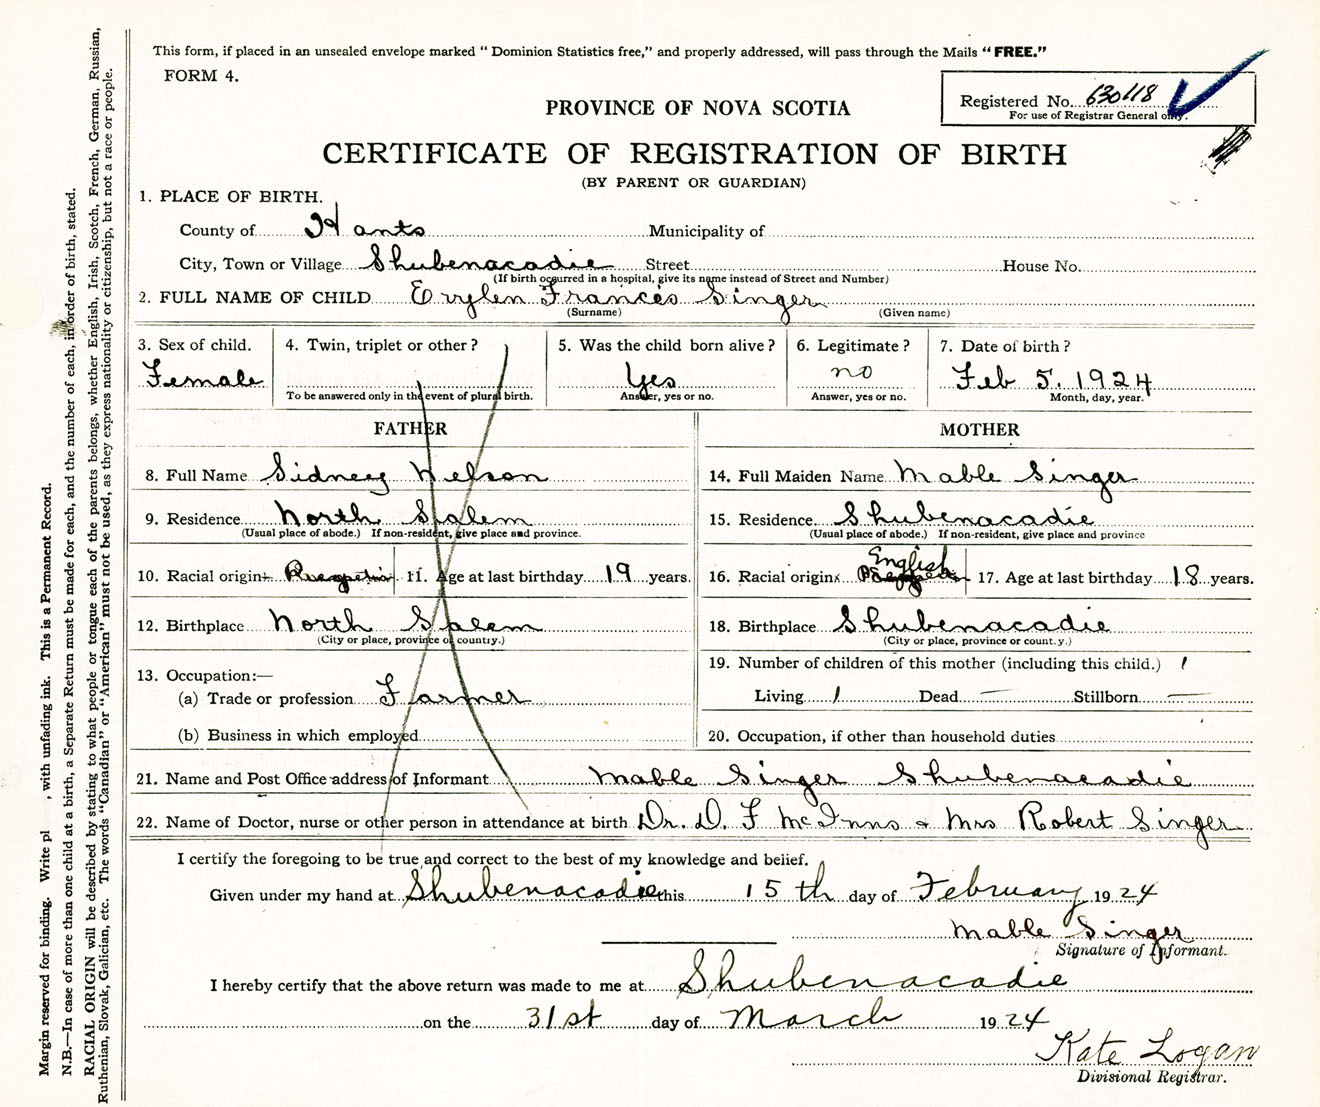 This form, if placed in an unsealed envelope marked “ Dominion Statistics free,” and properly addressed, will pass through the Mails “ FREE.”
FORM 4.
Registered No. 630118
For use of Registrar General only.
PROVINCE OF NOVA SCOTIA
CERTIFICATE OF REGISTRATION OF BIRTH
(BY PARENT OR GUARDIAN)
1. PLACE OF BIRTH.
County of Hants Municipality of
City, Town or Village Shubenacadie Street House No.
(If birth occurred in a hospital, give its name instead of Street and Number)
2. FULL NAME OF CHILD Evylen Frances Singer
(Surname) (Given name)
3. Sex of child. 4. Twin, triplet or other ? 5. Was the child born alive ? 6. Legitimate ? 7. Date of birth ?
Female Yes no Feb 5. 1924
To be answered only in the event of plural birth. Answer, yes or no. Answer, yes or no. Month, day, year.
FATHER MOTHER
8. Full Name Sidney Nelson 14. Full Maiden Name Mable Singer
9. Residence North Salem 15. Residence Shubenacadie
(Usual place of abode.) If non-resident, give place and province. (Usual place of abode) If non-resident, give place and province
10. Racial origin 11. Age at last birthday 19 years. 16. Racial origin English 17. Age at last birthday 18 years.
12. Birthplace North Salem 18. Birthplace Shubenacadie
(City or place, province or country.) (City or place, province or count.y.)
13. Occupation:— 19. Number of children of this mother (including this child.) 1
(a) Trade or profession Farmer Living 1 Dead — Stillborn —
(b) Business in which employed 20. Occupation, if other than household duties
21. Name and Post Office address of Informant Mable Singer Shubenacadie
22. Name of Doctor, nurse or other person in attendance at birth Dr. D. F McInns + Mrs Robert Singer
I certify the foregoing to be true and correct to the best of my knowledge and belief.
Given under my hand at Shubenacadie this 15 th day of February 1924
Mable Singer
Signature of Informant.
I hereby certify that the above return was made to me at Shubenacadie
on the 31st day of March 1924
Kate Logan
Divisional Registrar.
Margin reserved for binding. Write pl , with unfading ink. This is a Permanent Record.
N.B.—In case of more than one child at a birth, a Separate Return must be made for each, and the number of each, in order of birth, stated.
RACIAL ORIGIN will be described by stating to what people or tongue each of the parents belongs, whether English, Irish, Scotch, French, German, Russian,
Ruthenian, Slovak, Galician, etc. The words “Canadian” or “American” must not be used, as they express nationality or citizenship, but not a race or people.